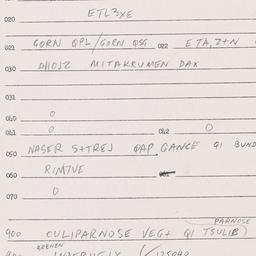 020 ETL3XE
021 GORN QPL/GORN QSG 022 ETA,Z+N
030 AHOJZ MITAKRUMEN DAX
031
040 0
041 0 042 0
050 NASER S+TREJ QAP GANCE QI BUND
060 RIMTVE
070 0
PARNOSE
900 CULIPARNOSE VEG+ QI TSULIB)